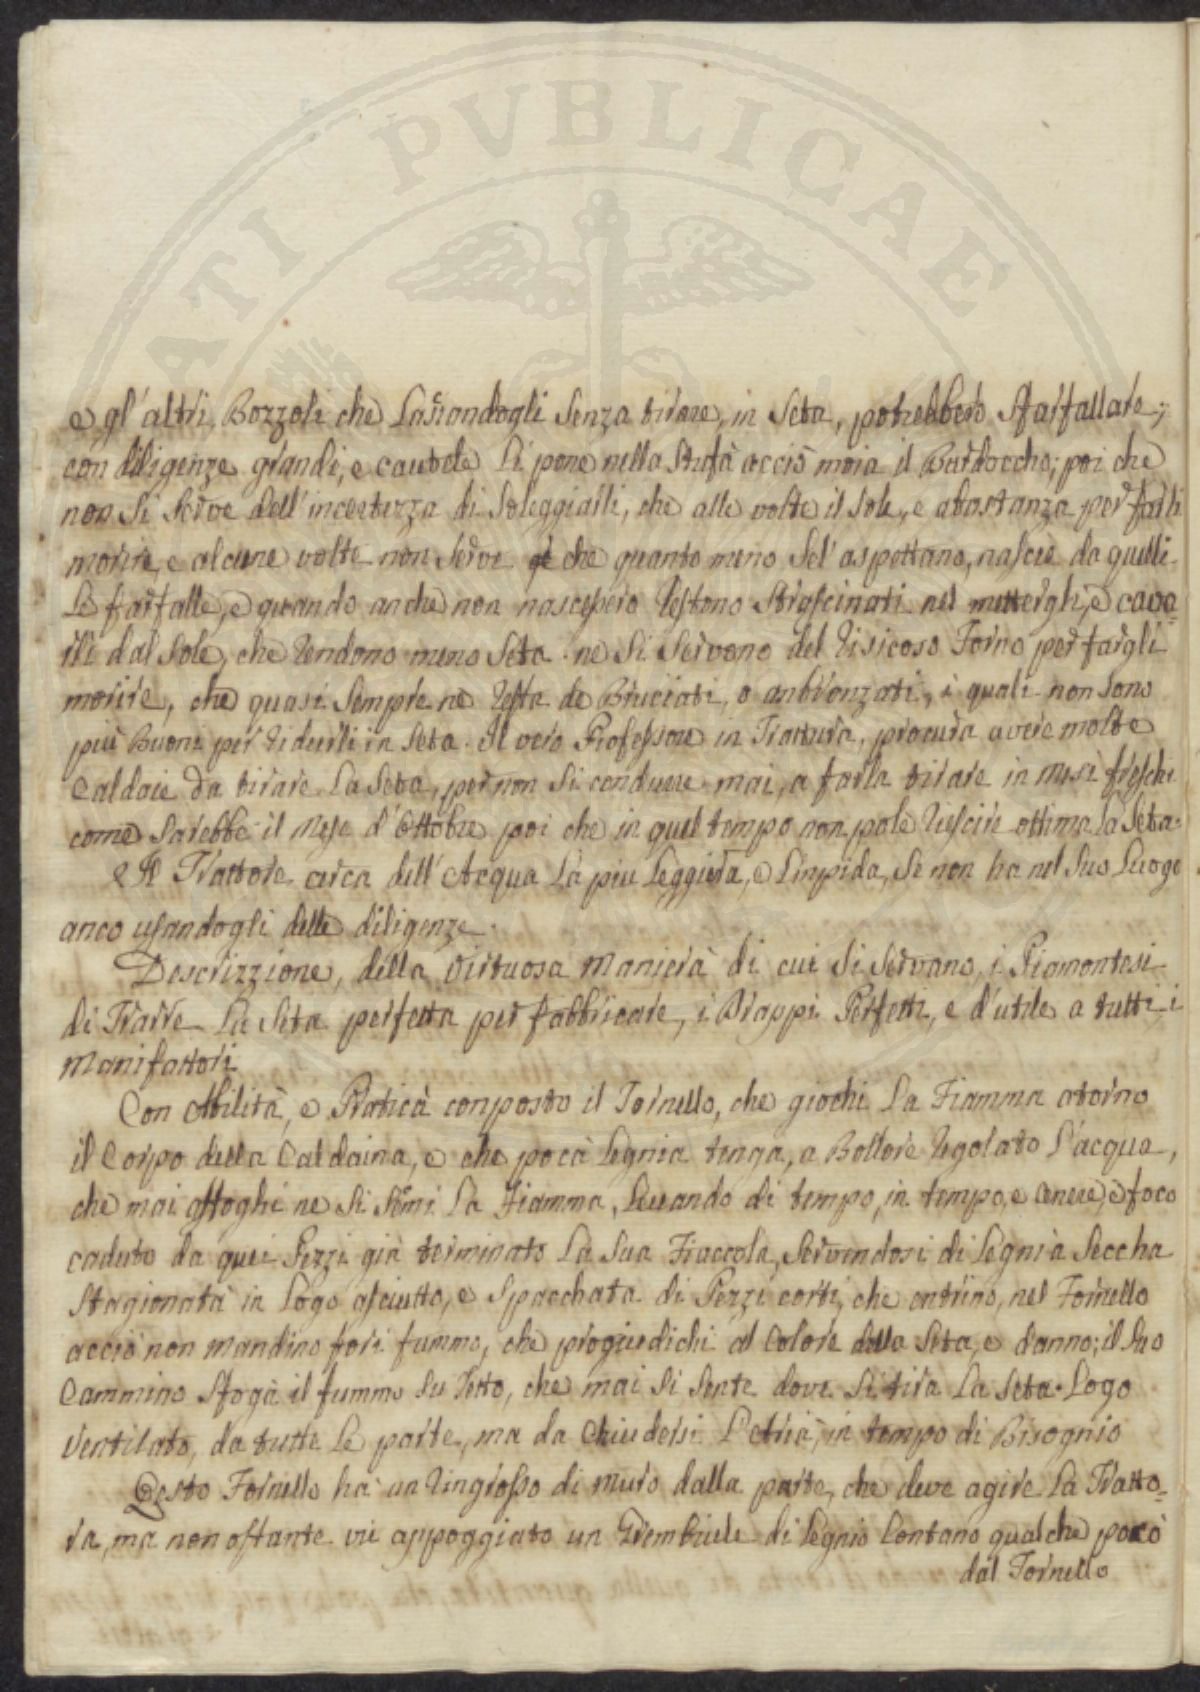 ATI PVBLICAE
e gl'altri Bozzoli che Lassandogli Senza tirare, in Seta, potrebbero Sfarfallare;
con diligenze grandi, e cautele Si pone nella Stufa acciò moia il Bardoccho; poi che
non Si Serve dell'incertezza di Soleggiarli, che alle volte il Sole, e abastanza per farli
morire, e alcune volte non Serve che quanto meno Sel'aspettano, nascie da quelli
Le farfalle, e quando anche non nascessero Restono Strascinati nel mettergli, e cava=
rli dal Sole, che Rendono meno Seta ne Si Servono del Risicoso Forno per fargli
morire, che quasi Sempre ne Resta de Bruciati, o anbronzati, i quali non Sono
più Buoni per Ridurli in Seta. Il vero Professore in Trattura, procura avere molte
Caldaie da tirare La Seta, per non Si condurre mai, a farla tirare in Mesi freschi
come Sarebbe il Mese d'Ottobre poi che in quel tempo non pole Riescire ottima la Seta.
E Il Trattore cerca dell'Acqua La piu Leggiera, e Linpida, Se non ha nel Suo Luogo
anco usandogli delle diligenze.
Descrizzione, della Virtuosa Maniera di cui Si Servano, i Piamontesi
di Trarre La Seta perfetta per fabbricare, i Drappi Perfetti, e d'utile a tutti i
Manifattori.
Con Abilità, e Pratica conposto il Fornello, che giochi La Fiamma atorno
il Corpo della Caldaina, e che poca Legnia tenga, a Bollore Regolato L'acqua,
che mai affoghi ne Si Stemi La Fiamma, Levando di tempo, in tempo, e Cenere, e foco
caduto da quei Pezzi già terminato La Sua Fiaccola, Servendosi di Legnia Seccha
Stagionata in Logo asciutto, e Spacchata di Pezzi corti, che entrino, nel Fornello
acciò non mandino fori fummo, che progiudichi al Colore della Seta, e danno; il Suo
Cammino Sfoga il fummo Su Tetto, che mai Si Sente dove Si tira La Seta. Logo
Ventilato, da tutte Le parte, ma da Chiudersi L'Aria, in tempo di Bisognio
Questo Fornello ha un Ringrosso di muro dalla parte, che deve agire La Tratto=
ra, ma non ostante vie appoggiato un Grembiule di Legnio Lontano qualche poco
dal Fornello